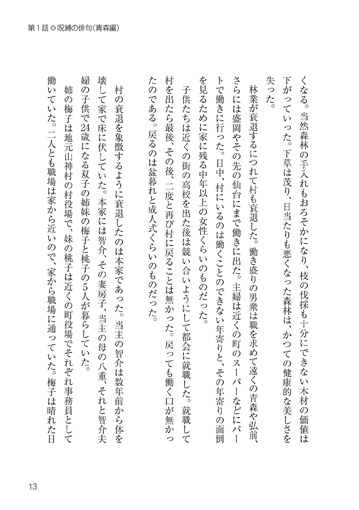 第1話◇呪縛の俳句(青森編)
くなる。当然森林の手入れもおろそかになり、枝の伐採も十分にできない木材の価値は
下がっていった。下草は茂り、日当たりも悪くなった森林は、かつての健康的な美しさを
失った。
林業が衰退するにつれて村も衰退した。働き盛りの男衆は職を求めて遠くの青森や弘前、
さらには盛岡やその先の仙台にまで働きに出た。主婦は近くの町のスーパーなどにパー
トで働きに行った。日中、村にいるのは働くことのできない年寄りと、その年寄りの面倒
を見るために家に残る中年以上の女性くらいのものだった。
子供たちは近くの街の高校を出た後は競い合いようにして都会に就職した。就職して
村を出たら最後、その後、二度と再び村に戻ることは無かった。戻っても働く口が無かっ
たのである。戻るのは盆暮れと成人式くらいのものだった。
村の衰退を象徴するように衰退したのは本家であった。当主の智介は数年前から体を
壊して家で床に伏していた。本家には智介、その妻房子、当主の母の八重、それと智介夫
婦の子供で24歳になる双子の姉妹の梅子と桃子の5人が暮らしていた。
姉の梅子は地元山神村の村役場で、妹の桃子は近くの町役場でそれぞれ事務員として
働いていた。二人とも職場は家から近いので、家から職場に通っていた。梅子は晴れた日
13